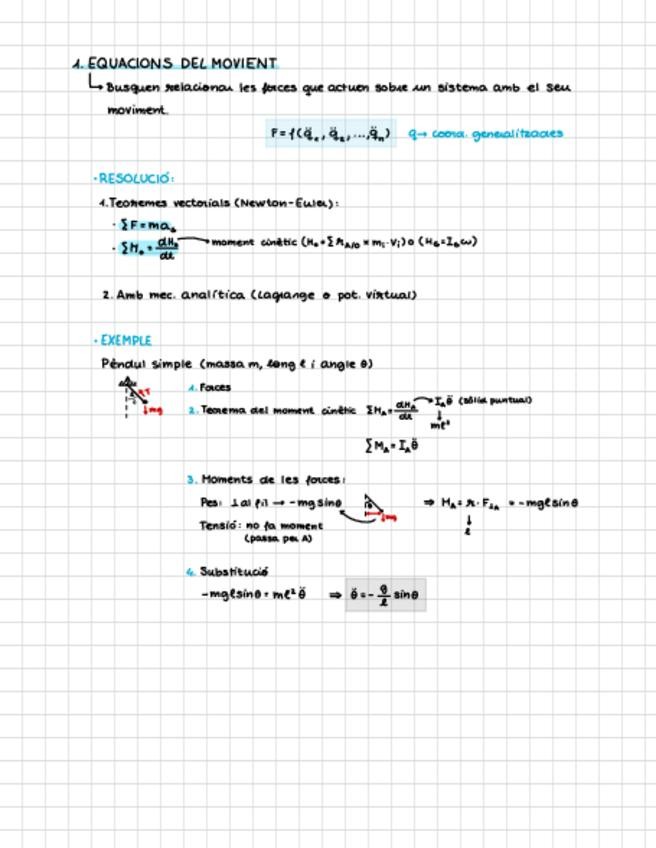 1. EQUACIONS DEL MOVIENT
↳ Busquen relacionar les forces que actuen sobre un sistema amb el seu
moviment.
F = f(q̈₁, q̈₂, ..., q̈ₙ) q → coord. generalitzades
· RESOLUCIÓ:
1. Teoremes vectorials (Newton-Euler):
· ΣF = ma_G
· ΣM₀ = dH₀/dt → moment cinètic (H₀ = Σ r_A/O × mᵢ · vᵢ) o (H_G = I_G ω)
2. Amb mec. analítica (Lagrange o pot. virtual)
· EXEMPLE
Pèndul simple (massa m, long ℓ i angle θ)
A
T
mg
1. Forces
2. Teorema del moment cinètic ΣM_A = dH_A/dt → I_A θ̈ (sòlid puntual)
↓
mℓ²
ΣM_A = I_A θ̈
3. Moments de les forces:
Pes: ⊥ al fil → -mg sinθ mg ⇒ M_A = r · F_⊥A = -mgℓ sinθ
↓
ℓ
Tensió: no fa moment
(passa per A)
4. Substitució
-mgℓ sinθ = mℓ² θ̈ ⇒ θ̈ = - g/ℓ sinθ